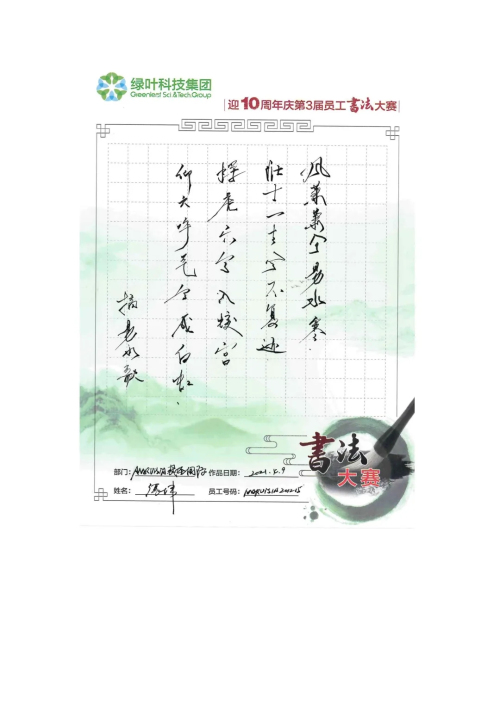 绿叶科技集团
Greenleaf Sci & Tech Group
迎10周年庆第3届员工书法大赛
风萧萧兮易水寒，
壮士一去兮不复还
探虎穴兮入蛟宫
仰天呼气兮成白虹。
摘易水歌
书法
大赛
部门： 作品日期：2021.5.9
姓名： 员工号码：